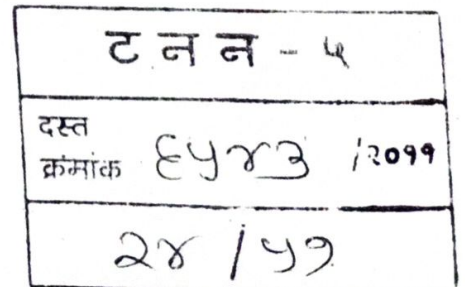 ट न न - ५
दस्त
क्रंमांक ६५४३ /२०११
२४ / ५७